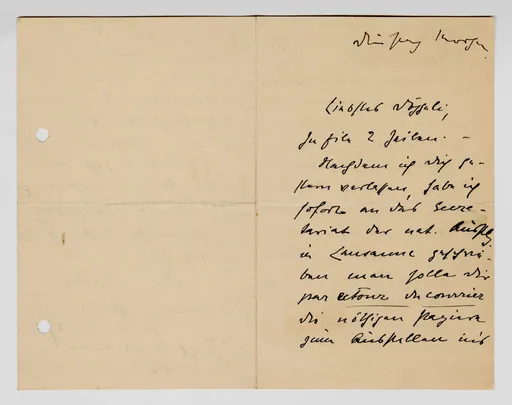 Dienstag Morgen.
Liebstes Vögeli,
In Eile 2 Zeilen. –
Nachdem ich dich ge-
stern verlassen, habe ich
sofort an das Secre-
tariat der nat. Ausstellg.
in Lausanne geschrie-
ben man solle dir
par retour du courrier
die nöthigen Papiere
zum Ausstellen ins